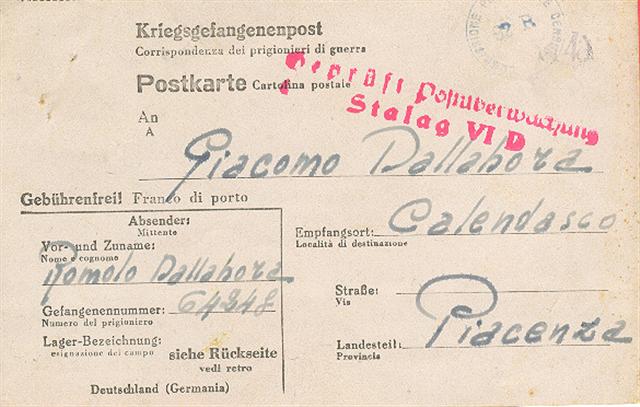 Kriegsgefangenenpost
Corrispondenza dei prigionieri di guerra
Postkarte Cartolina postale
Geprüft Postüberwachung
Stalag VI D
An
A
Giacomo Dallahora
Gebührenfrei! Franco di porto
Absender:
Mittente
Vor- und Zuname:
Nome e cognome
Romolo Dallahora
Gefangenennummer: 64248
Numero del prigioniero
Lager-Bezeichnung:
esignazione del campo
siehe Rückseite
vedi retro
Deutschland (Germania)
Empfangsort: Calendasco
Località di destinazione
Straße:
Via
Landesteil: Piacenza
Provincia